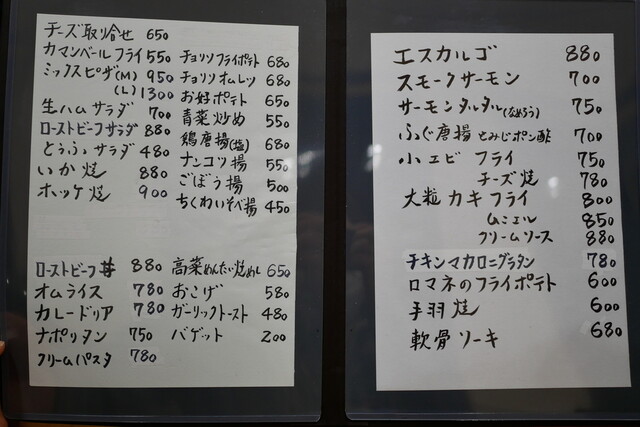 チーズ取り合せ 650
カマンベールフライ 550
ミックスピザ(M) 950
(L) 1300
生ハムサラダ 700
ローストビーフサラダ 880
とうふサラダ 480
いか焼 880
ホッケ焼 900
チョリソフライポテト 680
チョリソオムレツ 680
お好ポテト 650
青菜炒め 550
鶏唐揚(塩) 680
ナンコツ揚 550
ごぼう揚 500
ちくわいそべ揚 450
ローストビーフ丼 880
オムライス 780
カレードリア 780
ナポリタン 750
クリームパスタ 780
高菜めんたい焼めし 650
おこげ 580
ガーリックトースト 480
バゲット 200
エスカルゴ 880
スモークサーモン 700
サーモンタルタル(なめろう) 750
ふぐ唐揚 とみじポン酢 700
小エビ フライ 750
チーズ焼 780
大粒カキフライ 800
ムニエル 850
クリームソース 880
チキンマカロニグラタン 780
ロマネのフライポテト 600
手羽焼 600
軟骨ソーキ 680